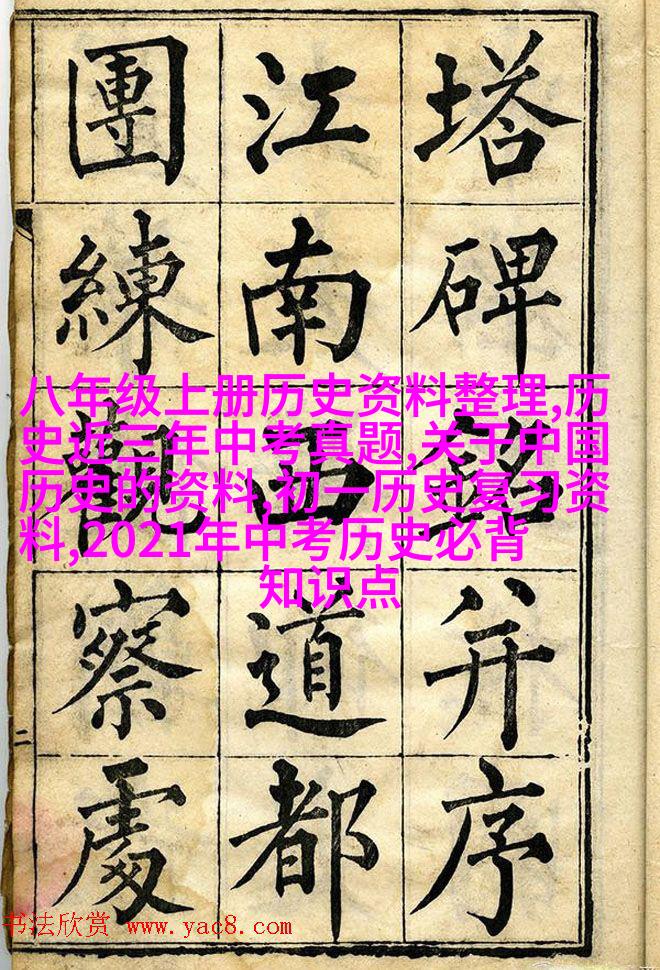 塔碑銘并序
江南西道都
團練觀察處
二
八年级上册历史资料整理,历
史近三年中考真题,关于中国
历史的资料,初一历史复习资
料,2021年中考历史必背
知识点
书法欣赏 www.yac8.com